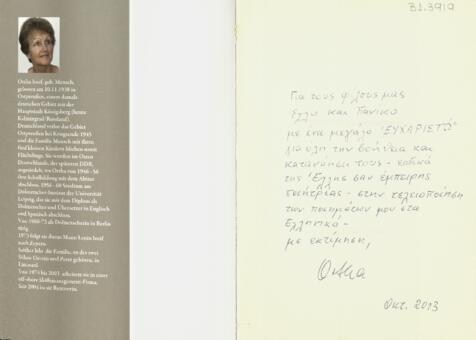 Ortha Iosif, geb. Mensch,
geboren am 10.11.1938 in
Ostpreußen, einem damals
deutschen Gebiet mit der
Hauptstadt Königsberg (heute
Kaliningrad/Russland).
Deutschland verlor das Gebiet
Ostpreußen bei Kriegsende 1945
und die Familie Mensch mit ihren
fünf kleinen Kindern
Flüchtlinge. Sie wurden im Osten
Deutschlands, der späteren DDR,
angesiedelt, wo Ortha von 1946 - 56
ihre Schulbildung mit dem Abitur
abschloss. 1956 - 60 Studium am
Dolmetscher-Institut der Universität
Leipzig, das sie mit dem Diplom als
Dolmetscher und Übersetzer in Englisch
und Spanisch abschloss.
Von 1960-73 als Dolmetscherin in Berlin
tätig.
1973 folgt sie ihrem Mann Iosif
nach Zypern.
Seither lebt die Familie, zu der zwei
Söhne und Peter gehören, in
Limassol.
Von 1973 bis 2003 arbeitete sie in einer
off-shore Firma.
Seit 2004 ist sie Rentnerin.
31.3919
Για τους φίλους μας
Έλλη και Πανίκο
με ένα μεγάλο "ΕΥΧΑΡΙΣΤΩ"
για όλη την βοήθεια και
κατανόηση τους - ειδικά
της Έλλης σαν έμπειρης
ποιήτριας - στην τελειοποίηση
των ποιημάτων μου στα
Ελληνικά -
με εκτίμηση,
Ortha
Οκτ. 2013